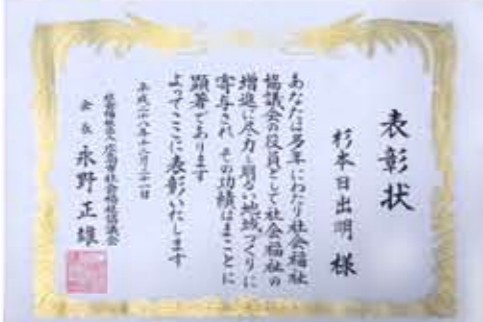 表彰状
杉本日出明 様
あなたは多年にわたり社会福祉
協議会の役員として社会福祉の
増進に尽力し明るい地域づくりに
寄与され その功績はまことに
顕著であります
よってここに表彰いたします
平成二十八年十一月二十一日
社会福祉法人広島市社会福祉協議会
会長 永野正雄